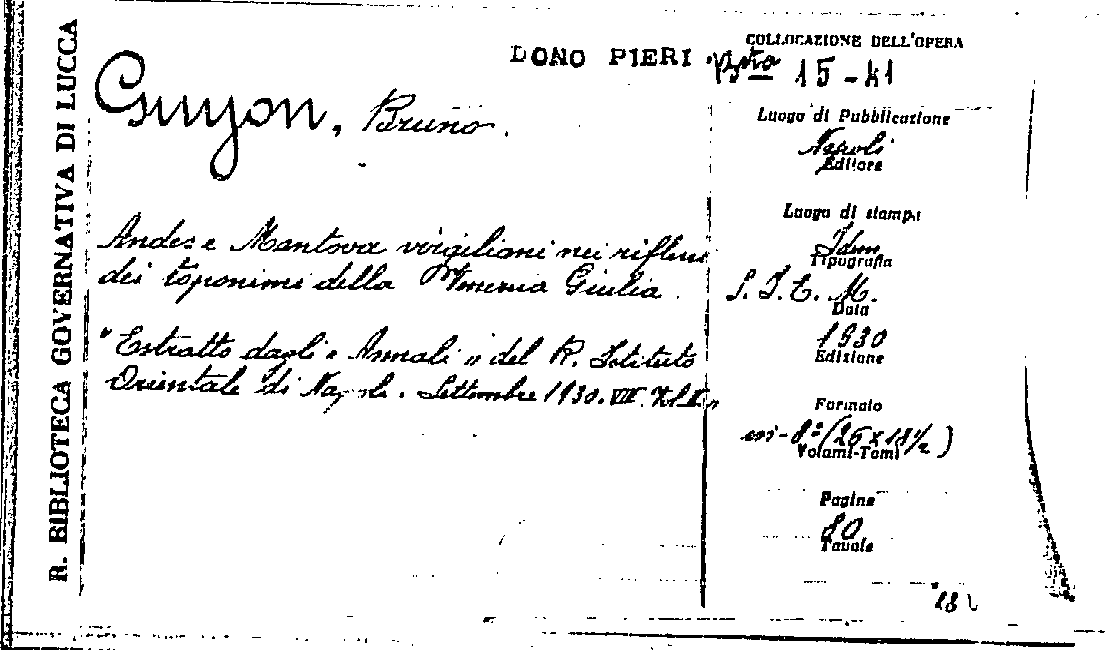 R. BIBLIOTECA GOVERNATIVA DI LUCCA
DONO PIERI
COLLOCAZIONE DELL'OPERA
Bta 15-41
Guyon, Bruno.
Andes e Mantova virgiliani nei riflessi
dei toponimi della Venezia Giulia.
"Estratto dagli « Annali » del R. Istituto
Orientale di Napoli. Settembre 1930. VIII.
Luogo di Pubblicazione
Napoli
Editore
Luogo di stampa
Idem
Tipografia
S. I. E. M.
Data
1930
Edizione
Formato
in-8º (26 x 18½)
Volumi-Tomi
Pagine
80
Tavole
18